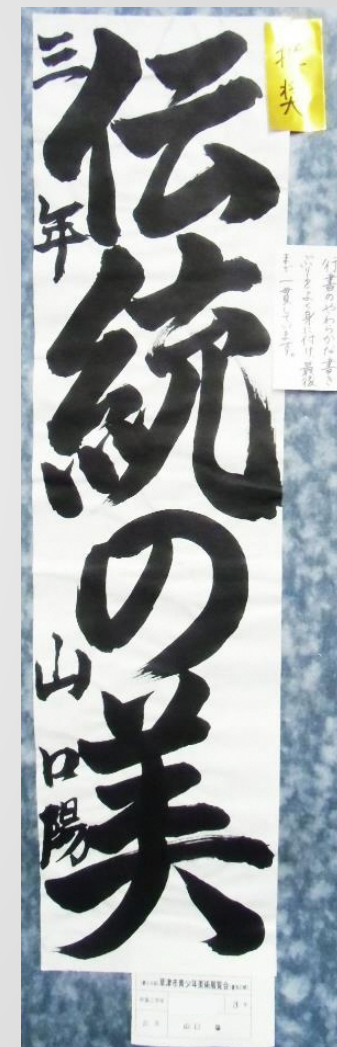 伝統の美
三年 山口陽
推奨
行書のやわらかな書き
ぶりをよく身に付け最後
まで一貫しています。
草津市青少年美術展覧会
山口 陽